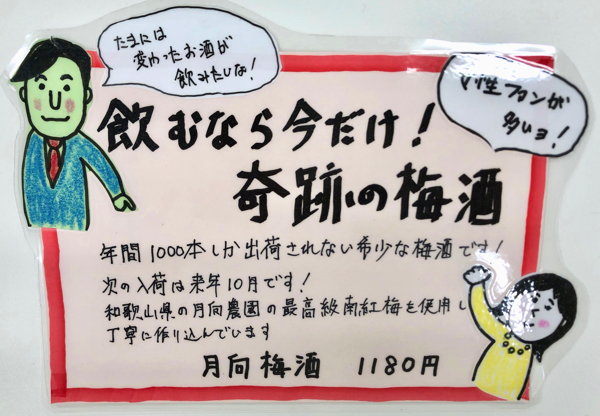 たまには
変わったお酒が
飲みたいな!
性ファンが
多いヨ!
飲むなら今だけ!
奇跡の梅酒
年間1000本しか出荷されない希少な梅酒です!
次の入荷は来年10月です!
和歌山県の月向農園の最高級南紅梅を使用し
丁寧に作り込んでいます
月向梅酒 1180円